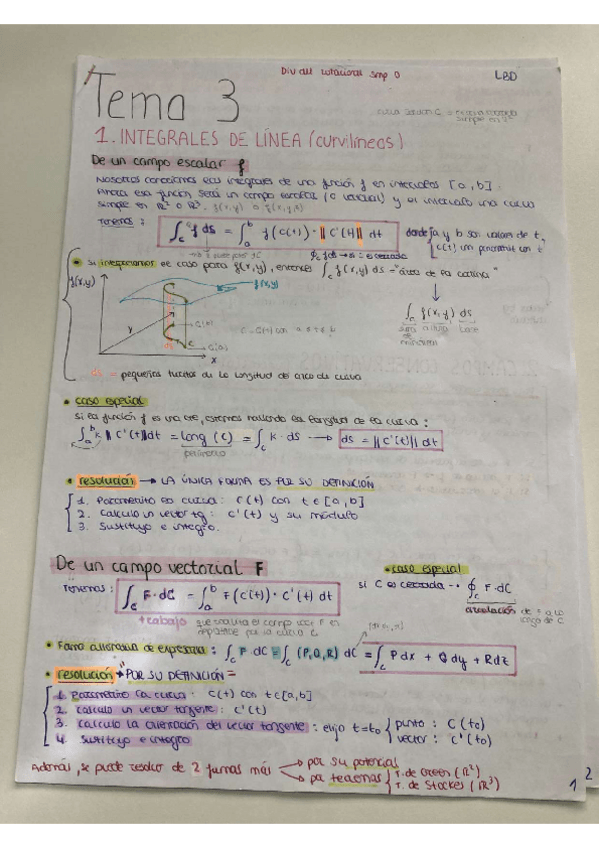 Div del rotacional smp 0
LBD
Tema 3
1. INTEGRALES DE LÍNEA (curvilíneas)
De un campo escalar f
Nosotros conocíamos las integrales de una función f en intervalos [a,b].
Ahora esa función será un campo escalar (o vectorial) y el intervalo una curva
simple en ℝ² o ℝ³. f(x,y) o f(x,y,z)
Tenemos: ∫_C f ds = ∫_a^b f(c(t)) · ||c'(t)|| dt
donde a y b son valores de t,
c(t) un
∮_C f ds → si es cerrada
• Si integramos el caso para f(x,y), entonces ∫_C f(x,y) ds = "área de la cortina"
f(x,y)
f(x,y)
y
x
ds
c
c(b)
c(a)
∫_C f(x,y) ds
suma altura base
ds = pequeños trocitos de la longitud de arco de curva
• caso especial
si la función f es una cte, estamos hallando la longitud de la curva:
∫_a^b k ||c'(t)|| dt = long (C) = ∫_C k · ds → ds = ||c'(t)|| dt
perímetro
• resolución → LA ÚNICA FORMA ES POR SU DEFINICIÓN
1. Parametrizo la curva: c(t) con t∈[a,b]
2. Calculo un vector tg: c'(t) y su módulo
3. Sustituyo e integro.
De un campo vectorial F
• caso especial
Tenemos: ∫_C F·dC = ∫_a^b F(c(t)) · c'(t) dt
si C es cerrada → ∮_C F·dC
circulación de F a lo
largo de C
trabajo que realiza el campo F en
desplazarse por la curva C.
• Forma alternativa de expresarla: ∫_C F dC = ∫_C (P,Q,R) dC = ∫_C Pdx + Qdy + Rdz
• resolución "POR SU DEFINICIÓN"
1. Parametrizo la curva: c(t) con t∈[a,b]
2. Calculo un vector tangente: c'(t)
3. Calculo la orientación del vector tangente: elijo t=t₀ punto: c(t₀)
vector: c'(t₀)
4. Sustituyo e integro
Además, se puede resolver de 2 formas más → por su potencial
→ por teoremas t. de Green (ℝ²)
t. de Stockes (ℝ³)
1
2